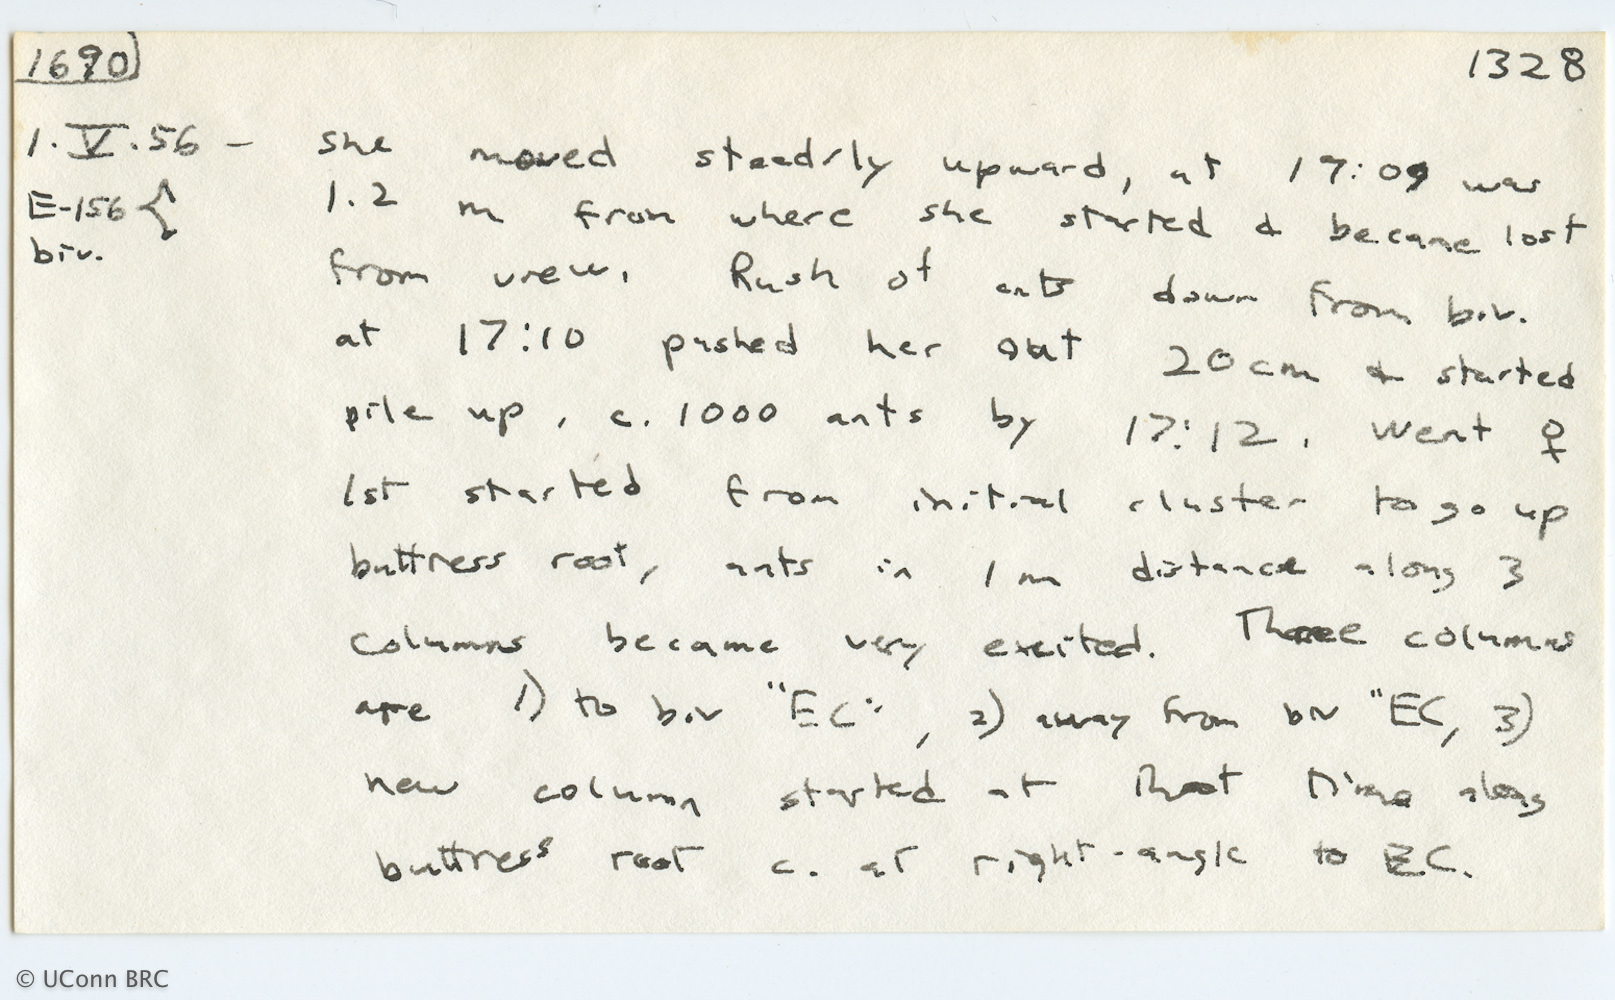 1690 1328
1.V.56 – she moved steadily upward, at 17:09 was
E-156 { 1.2 m from where she started & became lost
biv. from view. Rush of ants down from biv.
at 17:10 pushed her out 20 cm & started
pile up, c. 1000 ants by 17:12. Went ♀
1st started from initial cluster to go up
buttress root, ants in 1 m distance along 3
columns became very excited. Three columns
are 1) to biv "EC", 2) away from biv "EC, 3)
new column started at that time along
buttress root c. at right-angle to EC.
© UConn BRC